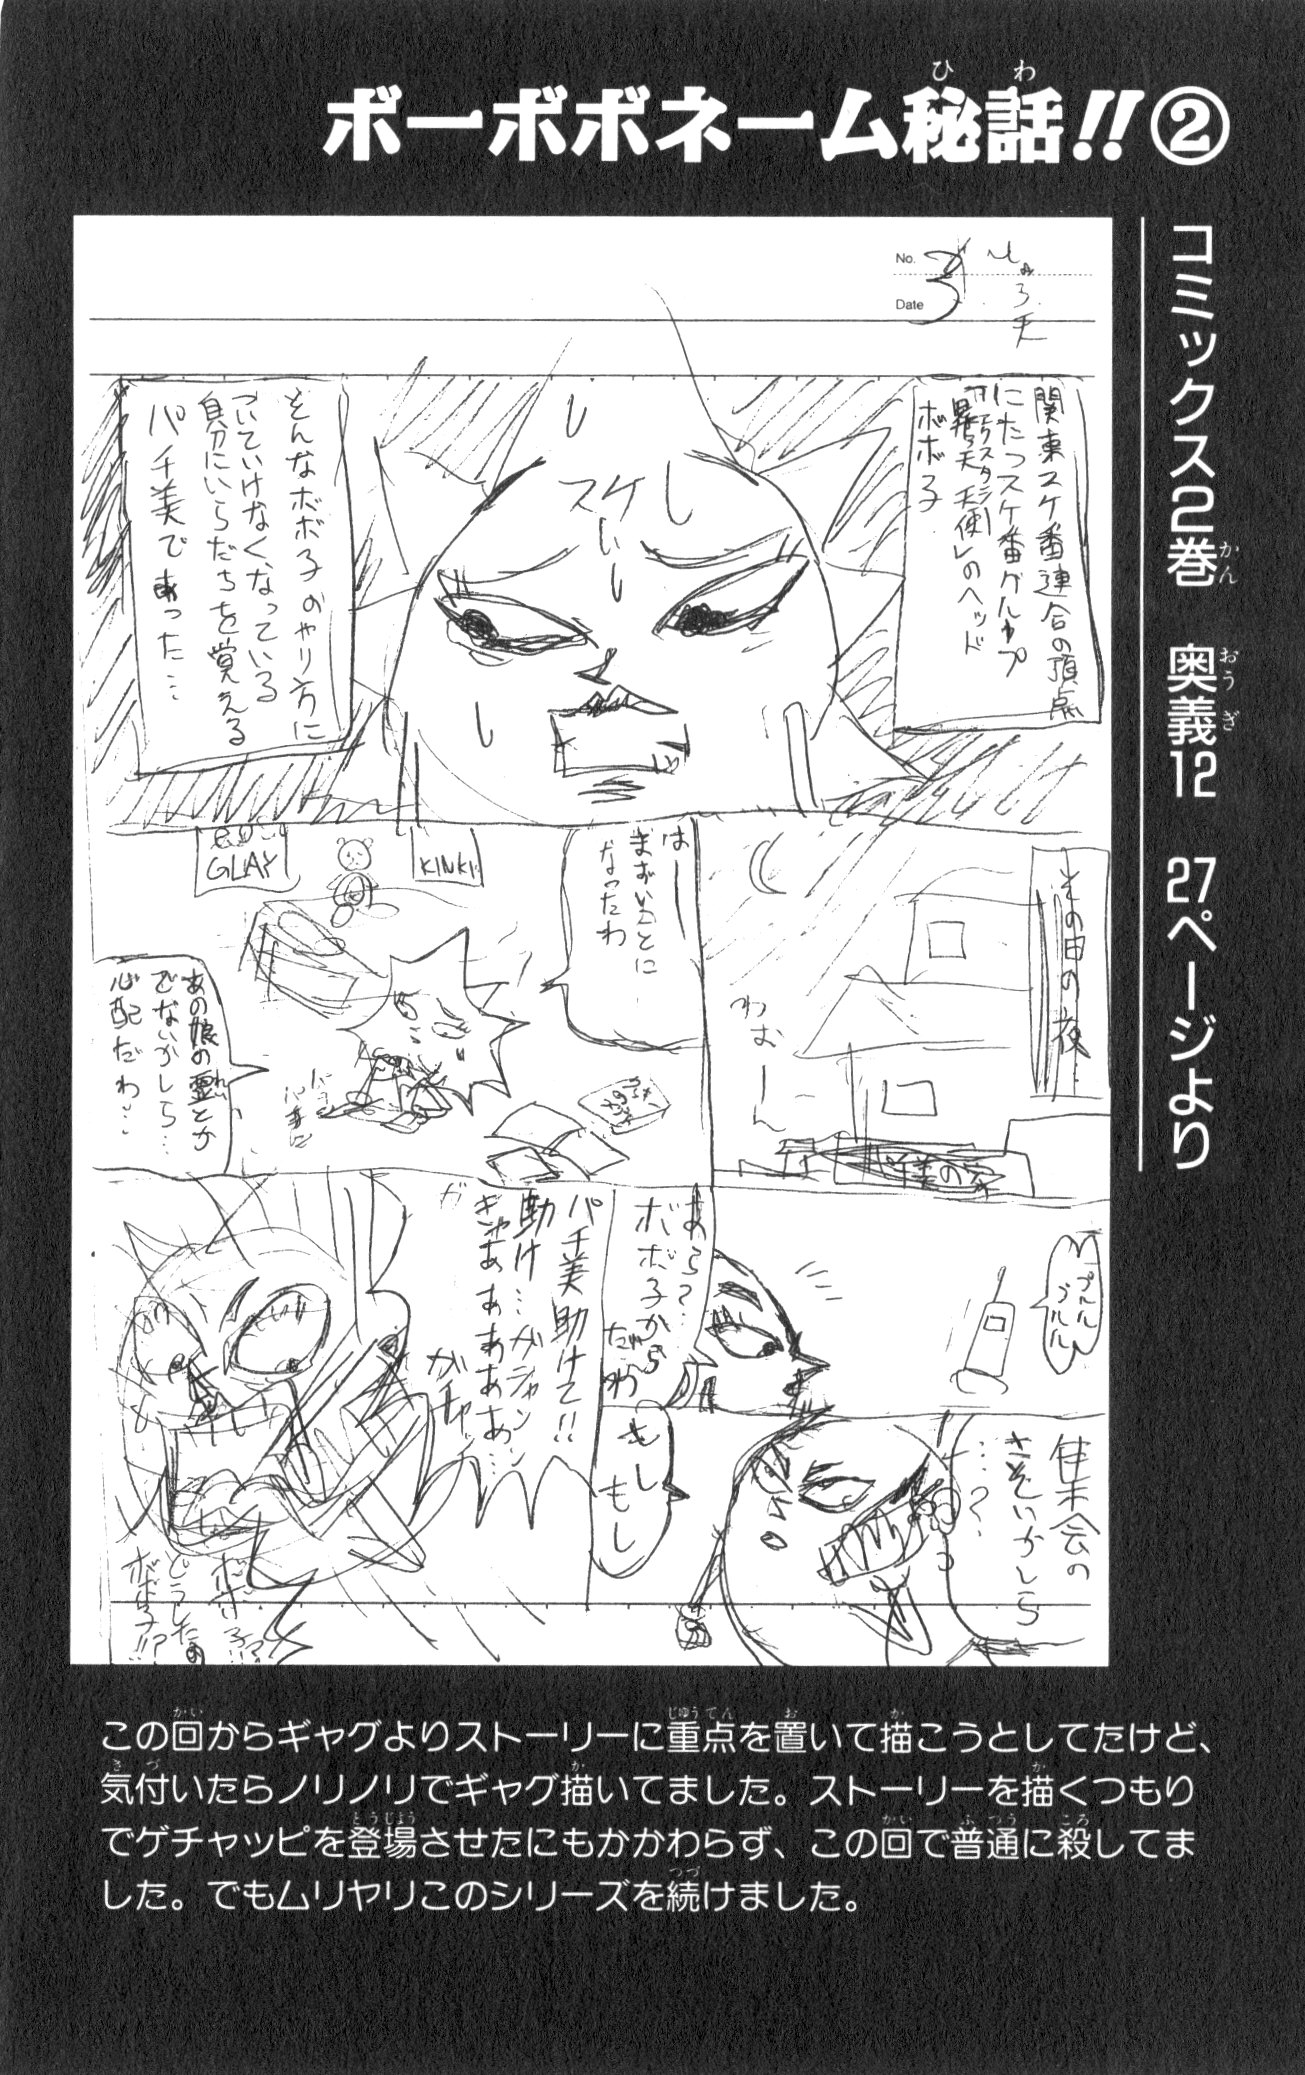 ボーボボネーム秘話!!②
ひわ
コミックス2巻 奥義12 27ページより
かん おうぎ
No. 3
Date
関東スケ番連合の頂点
にたつスケ番グループ
ボボ子
スケ
そんなボボ子のやり方に
ついていけなくなっている
自分にいらだちを覚える
パチ美であった…
その日の夜…
わおーん
はー
まずいことに
なったわ
KINKI
GLAY
あの娘の霊とか
でないかしら…
心配だわ…
プルル
プルル
あら?…
ボボ子から
だわ
集会の
さそいかしら
…?
もし
もし
パチ美助けて!!
助け…ガシャン
ぎゃああああ…
ガチャ
どうしたの
ボボ子!!?
この回からギャグよりストーリーに重点を置いて描こうとしてたけど、
かい じゅうてん お か
気付いたらノリノリでギャグ描いてました。ストーリーを描くつもり
きづ か か
でゲチャッピを登場させたにもかかわらず、この回で普通に殺してま
とうじょう かい ふつう ころ
した。でもムリヤリこのシリーズを続けました。
つづ